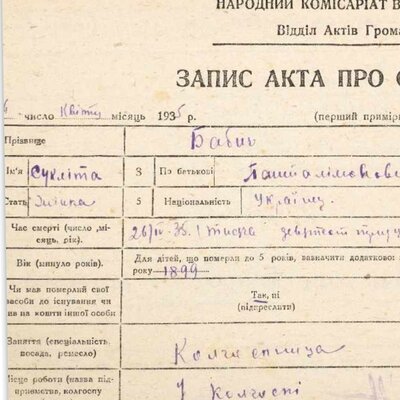 НАРОДНИЙ КОМІСАРІАТ В
Відділ Актів Грома
ЗАПИС АКТА ПРО
число Квітня місяць 1935 р. (перший примір
Прізвище Бабич
Ім'я 3 По батькові
Стать Жінка 5 Національність Україн
Час смерті (число, мі-
сяць, рік). 26/IV-35.
Вік (минуло років). Для дітей, що померли до 5 років, зазначити додатково:
року 1899
Чи мав померлий свої
засоби до існування чи
ив на кошти іншої особи
Так, ні
(підкреслити)
Заняття (спеціальність,
посада, ремесло) Колгоспниця
Місце роботи (назва під-
приємства, колгоспу У колгоспі